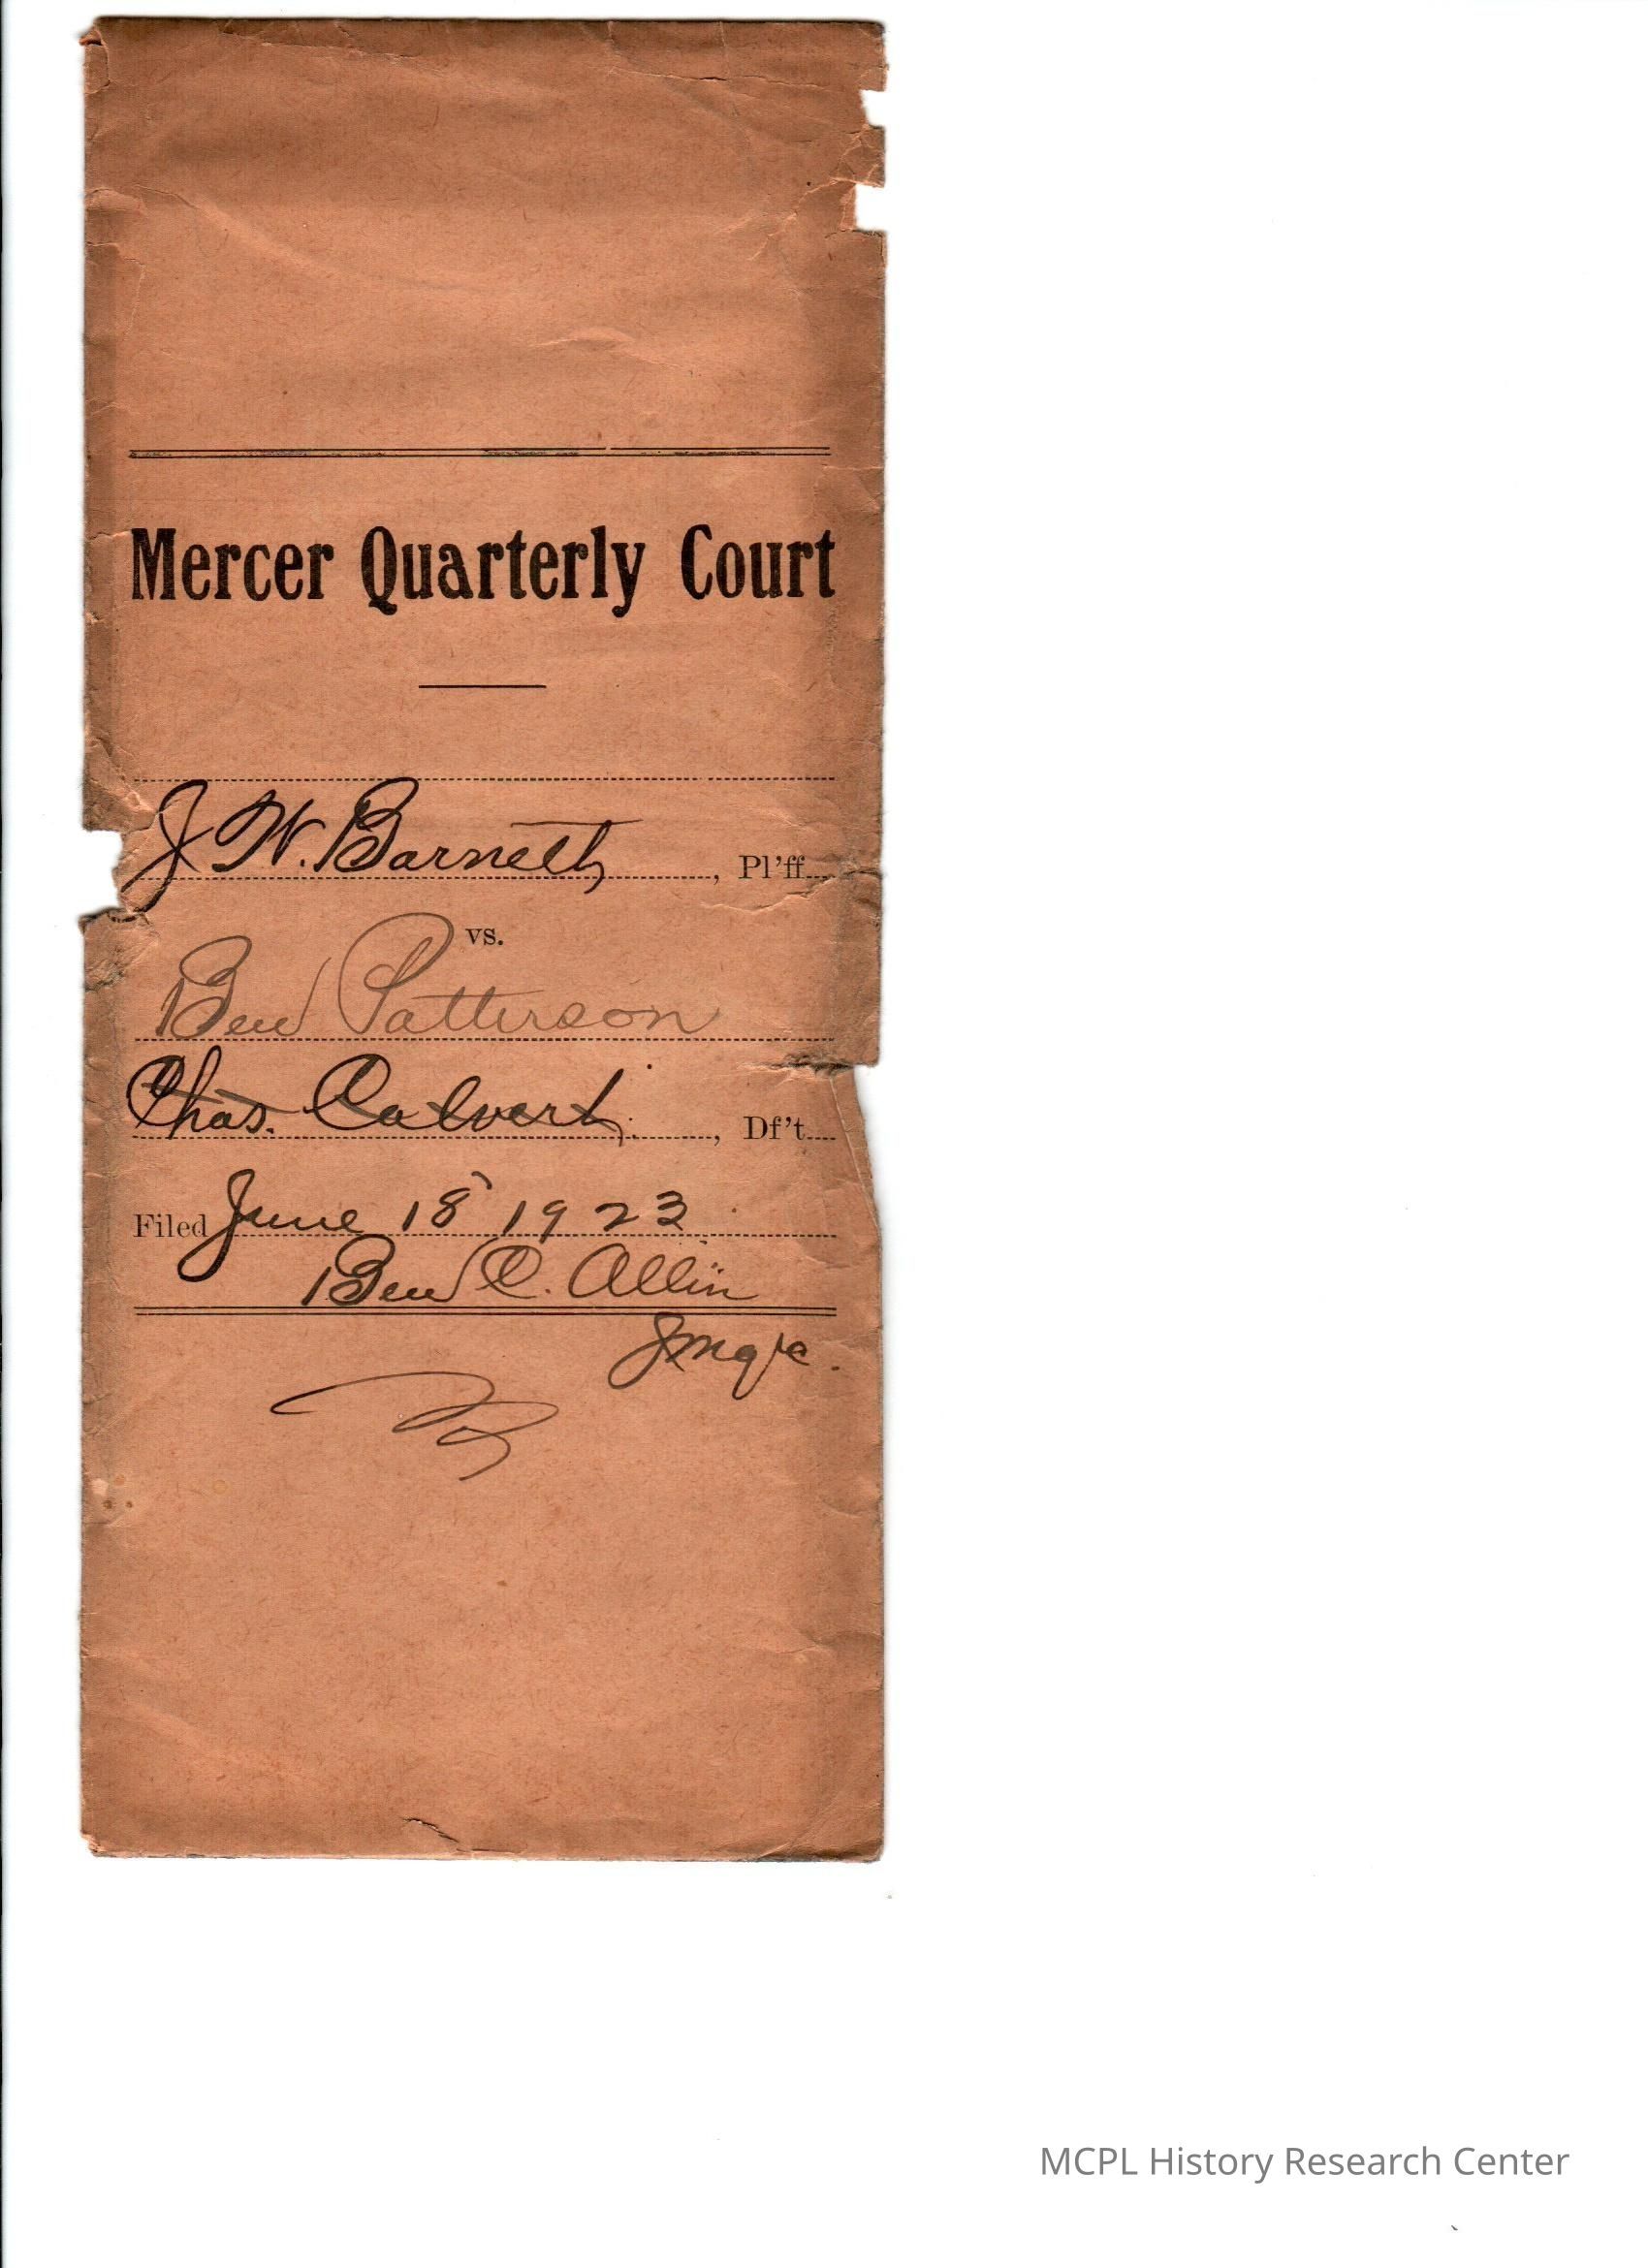 Mercer Quarterly Court
J. W. Barnett, Pl'ff
vs.
Ben Patterson
Chas. Calvert, Df't
Filed June 18 1923
Ben C. Allin
MCPL History Research Center